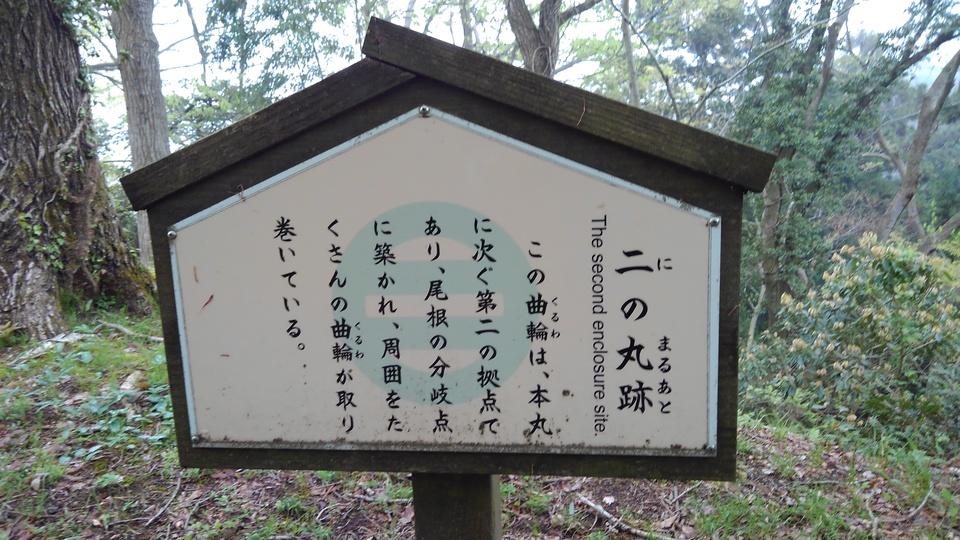 二の丸跡
に まるあと
The second enclosure site.
この曲輪は、本丸
くるわ
に次ぐ第二の拠点で
あり、尾根の分岐点
に築かれ、周囲をた
くさんの曲輪が取り
くるわ
巻いている。